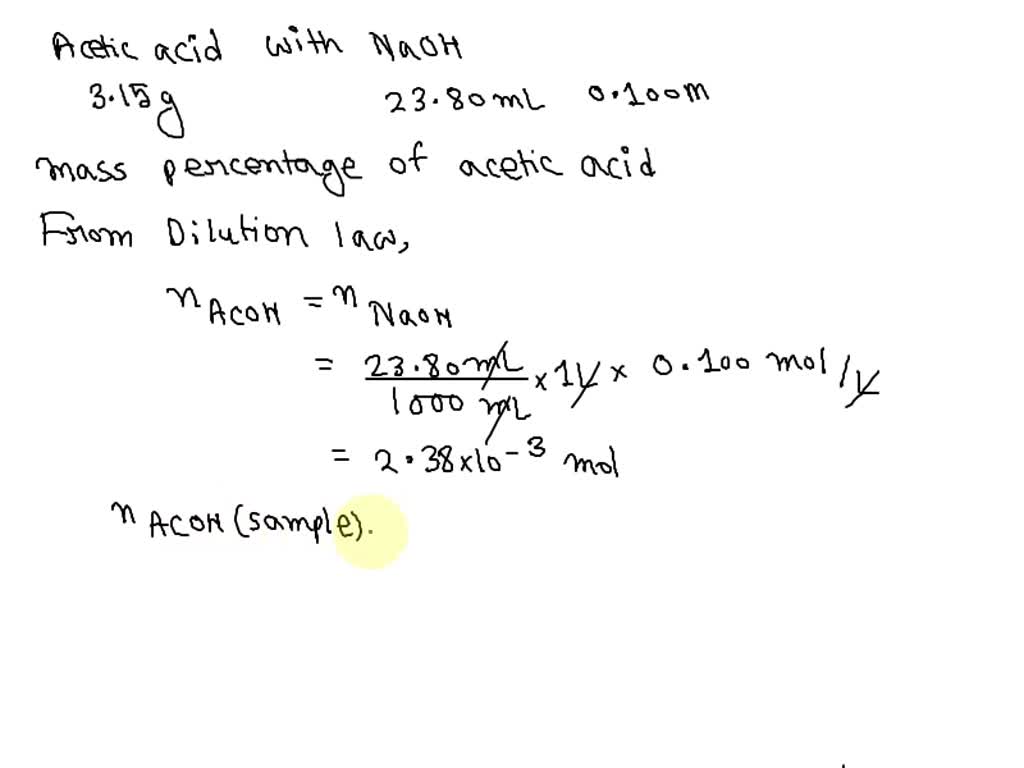 Acetic acid with NaOH
3.15g 23.80mL 0.100M
mass percentage of acetic acid
From Dilution law,
n AcOH = n NaOH
= 23.80mL / 1000 mL × 1L × 0.100 mol/L
= 2.38×10⁻³ mol
n ACOH (sample).